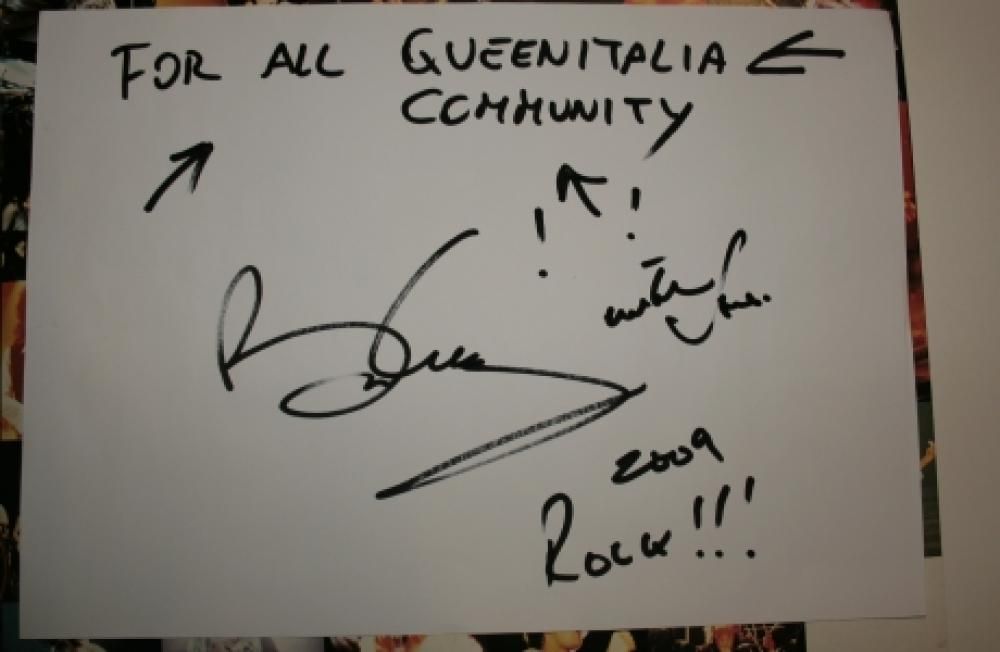 FOR ALL QUEENITALIA
COMMUNITY
! !
with love.
2009
ROCK !!!